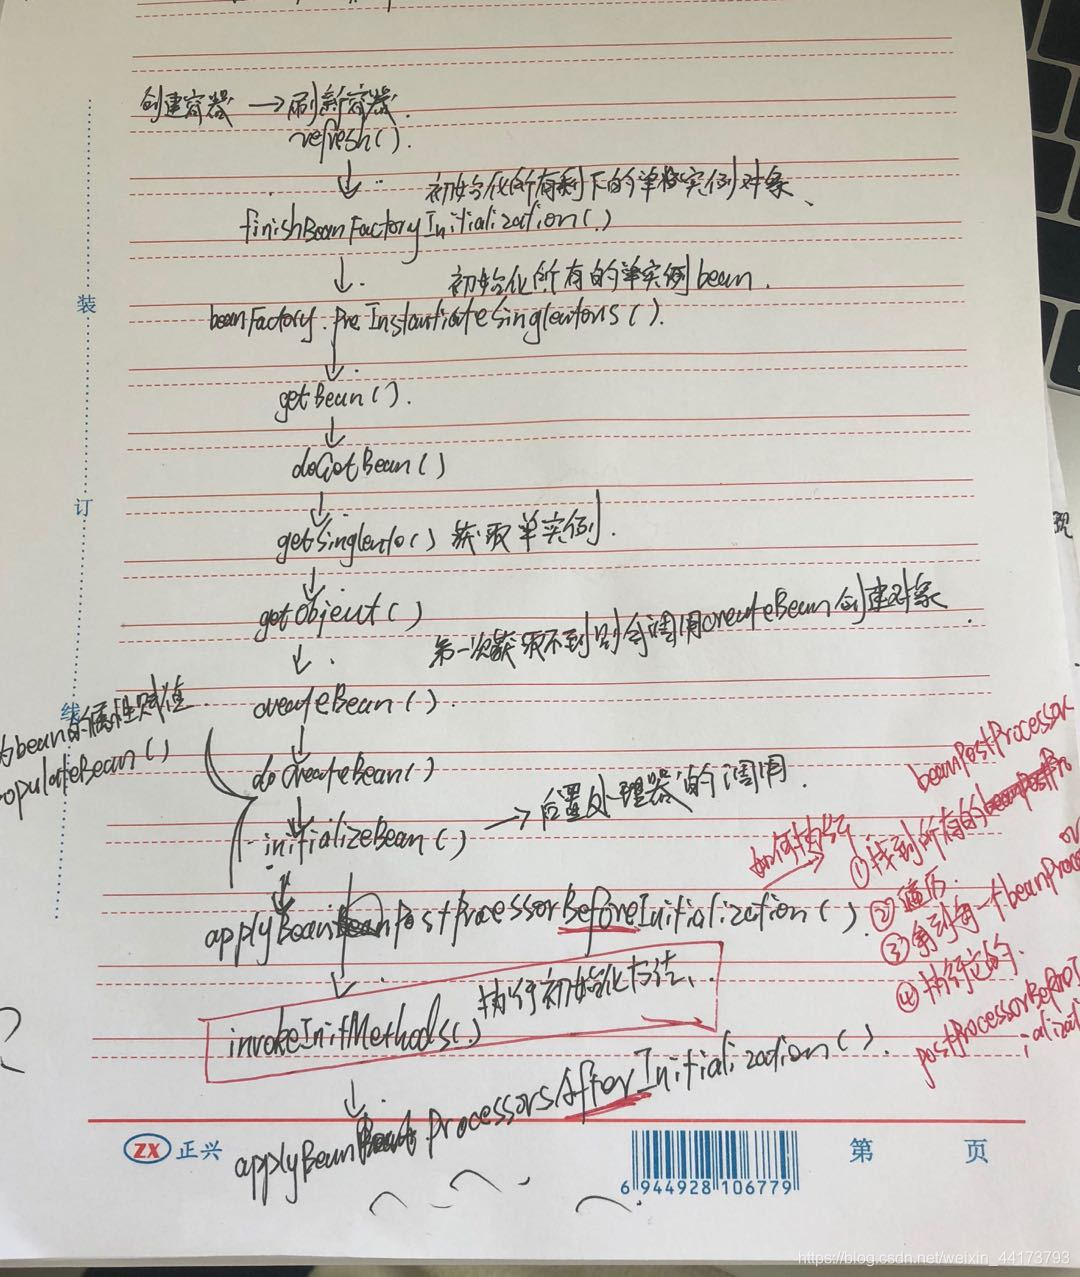 创建容器 → 刷新容器.
refresh().
初始化所有剩下的单实例对象、
finishBeanFactoryInitialization()
初始化所有的单实例bean.
beanFactory.PreInstantiateSingletons().
getBean().
doGetBean()
getSingleto() 获取单实例.
getObject()
第一次获取不到则会调用createBean创建对象.
createBean().
为bean的属性赋值
populateBean()
doCreateBean()
initializeBean() → 后置处理器的调用.
如何执行
beanPostProcessor
①找到所有的
②遍历.
③拿到每一个beanProce
④执行它的.
postProcessorBefore
applyBeanPostProcessorBeforeInitialization().
执行初始化方法、
invokeInitMethods()
applyBean ProcessorsAfterInitialization().
装
订
线
ZX 正兴
6 944928 106779
第 页
https://blog.csdn.net/weixin_44173793